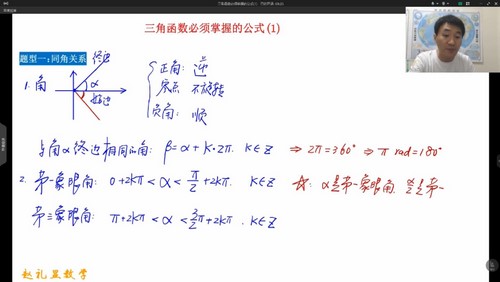 三角函数必须掌握的公式(1)
题型一:同角关系
1. 角
终边
α
始边
正角: 逆
零点 不旋转
负角: 顺
与角α终边相同的角: β=α+k·2π. k∈Z ⇒ 2π=360° ⇒ π rad=180°
2. 第一象限角: 0+2kπ<α<π/2+2kπ. k∈Z ☆: α是第一象限角. α/2是第一
第三象限角: π+2kπ<α<3/2π+2kπ. k∈Z
赵礼显数学